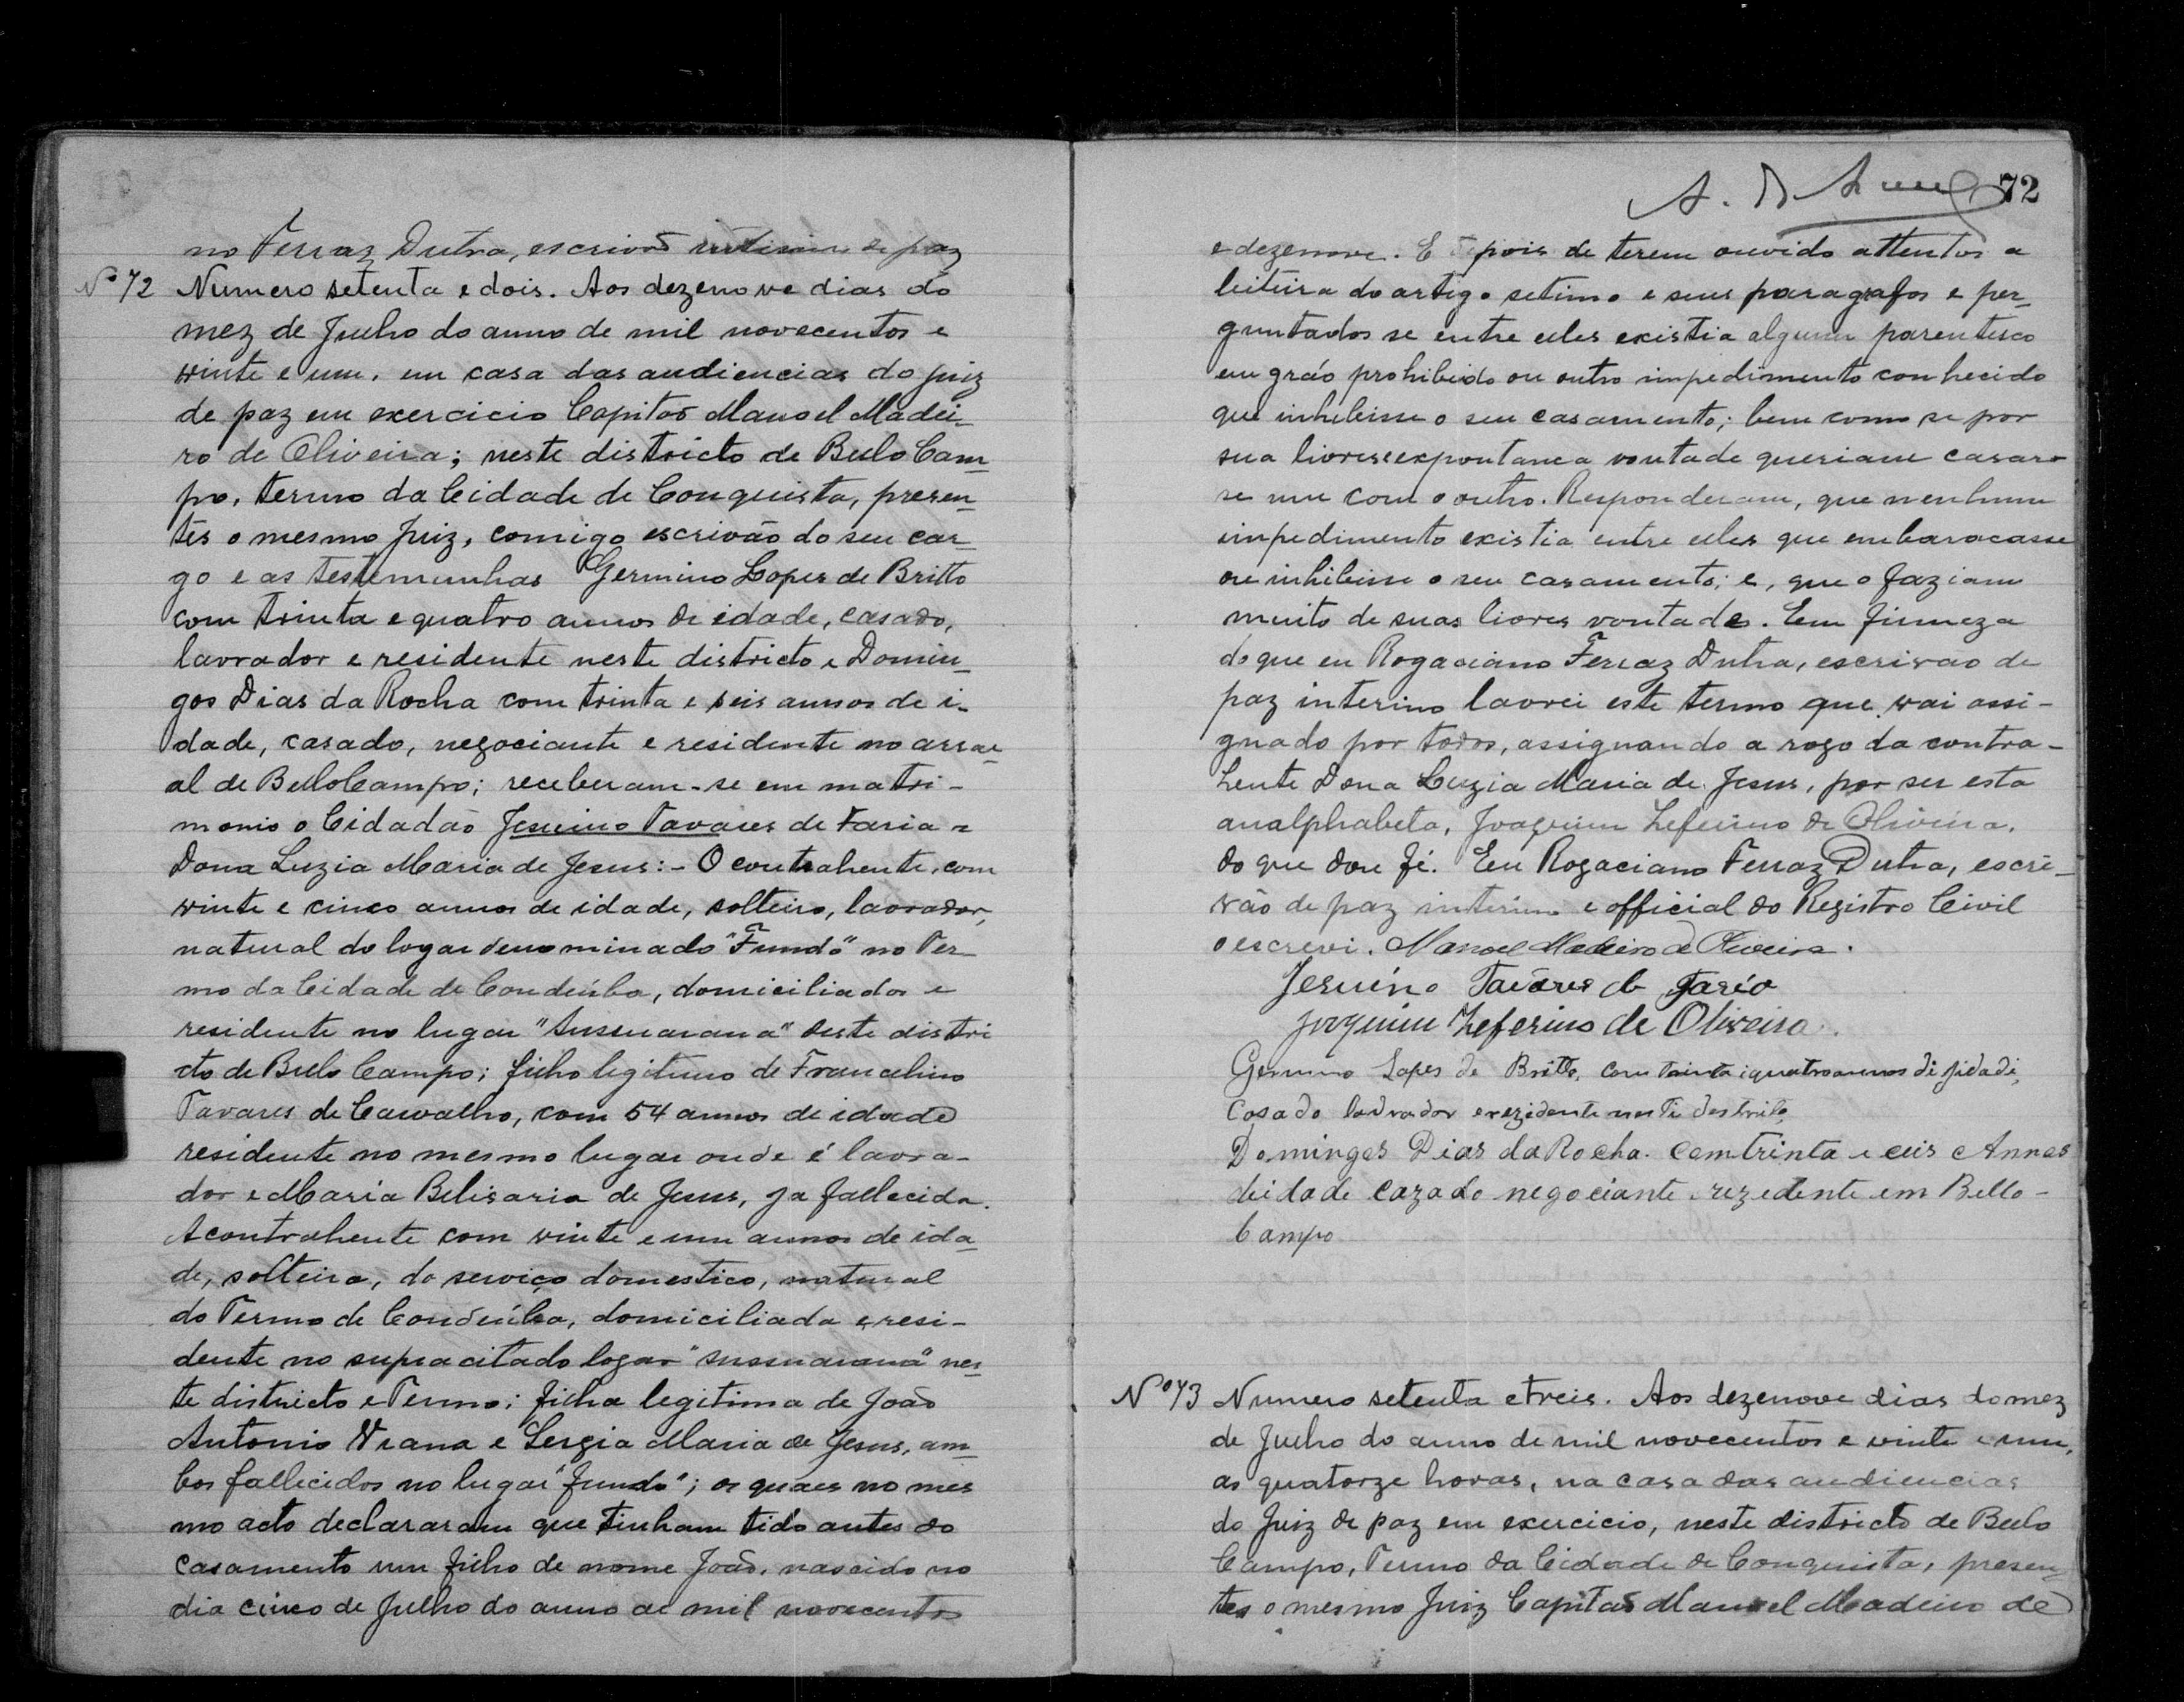 no Ferraz Dutra, escrivão interino de paz
Nº 72 Numero setenta e dois. Aos dezenove dias do
mez de Julho do anno de mil novecentos e
vinte e um, em casa das audiencias do juiz
de paz em exercicio Capitão Manoel Madei-
ro de Oliveira; neste districto de Bello Cam-
po, termo da Cidade de Conquista, presen-
tes o mesmo Juiz, comigo escrivão do seu car-
go e as testemunhas Germino Lopes de Britto
com trinta e quatro annos de edade, casado,
lavrador e residente neste districto e Domin-
gos Dias da Rocha com trinta e seis annos de i-
dade, casado, negociante e residente no arrai-
al de Bello Campo; receberam-se em matri-
monio o Cidadão Jesuino Tavares de Faria e
Dona Luzia Maria de Jesus:- O contrahente, com
vinte e cinco annos de idade, solteiro, lavrador,
natural do logar denominado "Fundo" no Ter-
mo da Cidade de Condeúba, domiciliados e
residente no lugar "Sussuarana" deste distri
cto de Bello Campo; filho legitimo de Francelino
Tavares de Carvalho, com 54 annos de idade
residente no mesmo lugar onde é lavra-
dor e Maria Belisaria de Jesus, ja fallecida.
A contrahente com vinte e um annos de ida-
de, solteira, do serviço domestico, natural
do Termo de Condeúba, domiciliada e resi-
dente no supra citado logar "Sussuarana" nes-
te districto e Termo; filha legitima de João
Antonio Viana e Sergia Maria de Jesus, am-
bos fallecidos no lugar "fundo"; os quaes no mes
mo acto declararam que tinham tido antes do
casamento um filho de nome João, nascido no
dia cinco de Julho do anno de mil novecentos
72
e dezenove. E depois de terem ouvido attentos a
leitura do artigo setimo e seus paragrafos e per-
guntados se entre elles existia algum parentesco
em gráo prohibido ou outro impedimento conhecido
que inhibisse o seu casamento; bem como se por
sua livre e expontanea vontade queriam casar-
se um com o outro. Responderam, que nenhum
impedimento existia entre elles que embaracasse
ou inhibisse o seu casamento; e, que o faziam
muito de suas livres vontades. Em firmeza
do que eu Rogaciano Ferraz Dutra, escrivão de
paz interino lavrei este termo que vai assi-
gnado por todos, assignando a rogo da contra-
hente Dona Luzia Maria de Jesus, por ser esta
analphabeta, Joaquim Zeferino de Oliveira,
do que dou fé. Eu Rogaciano Ferraz Dutra, escri-
vão de paz interino e official do Registro Civil
o escrevi. Manoel Madeiro de Oliveira.
Jesuino Tavares de Faria
Joaquim Zeferino de Oliveira.
Germino Lopes de Britto, com trinta i quatro annos di jidadi,
Casado ladrador e rezidente nesti destrito
Domingos Dias da Rocha. com trinta e ceis Annos
deidade cazado negociante rezedente em Bello-
Campo
Nº 73 Numero setenta e treis. Aos dezenove dias do mez
de Julho do anno de mil novecentos e vinte e um,
as quatorze horas, na casa das audiencias
do Juiz de paz em exercicio, neste districto de Bello
Campo, Termo da Cidade de Conquista, presen-
tes o mesmo Juiz Capitão Manoel Madeiro de